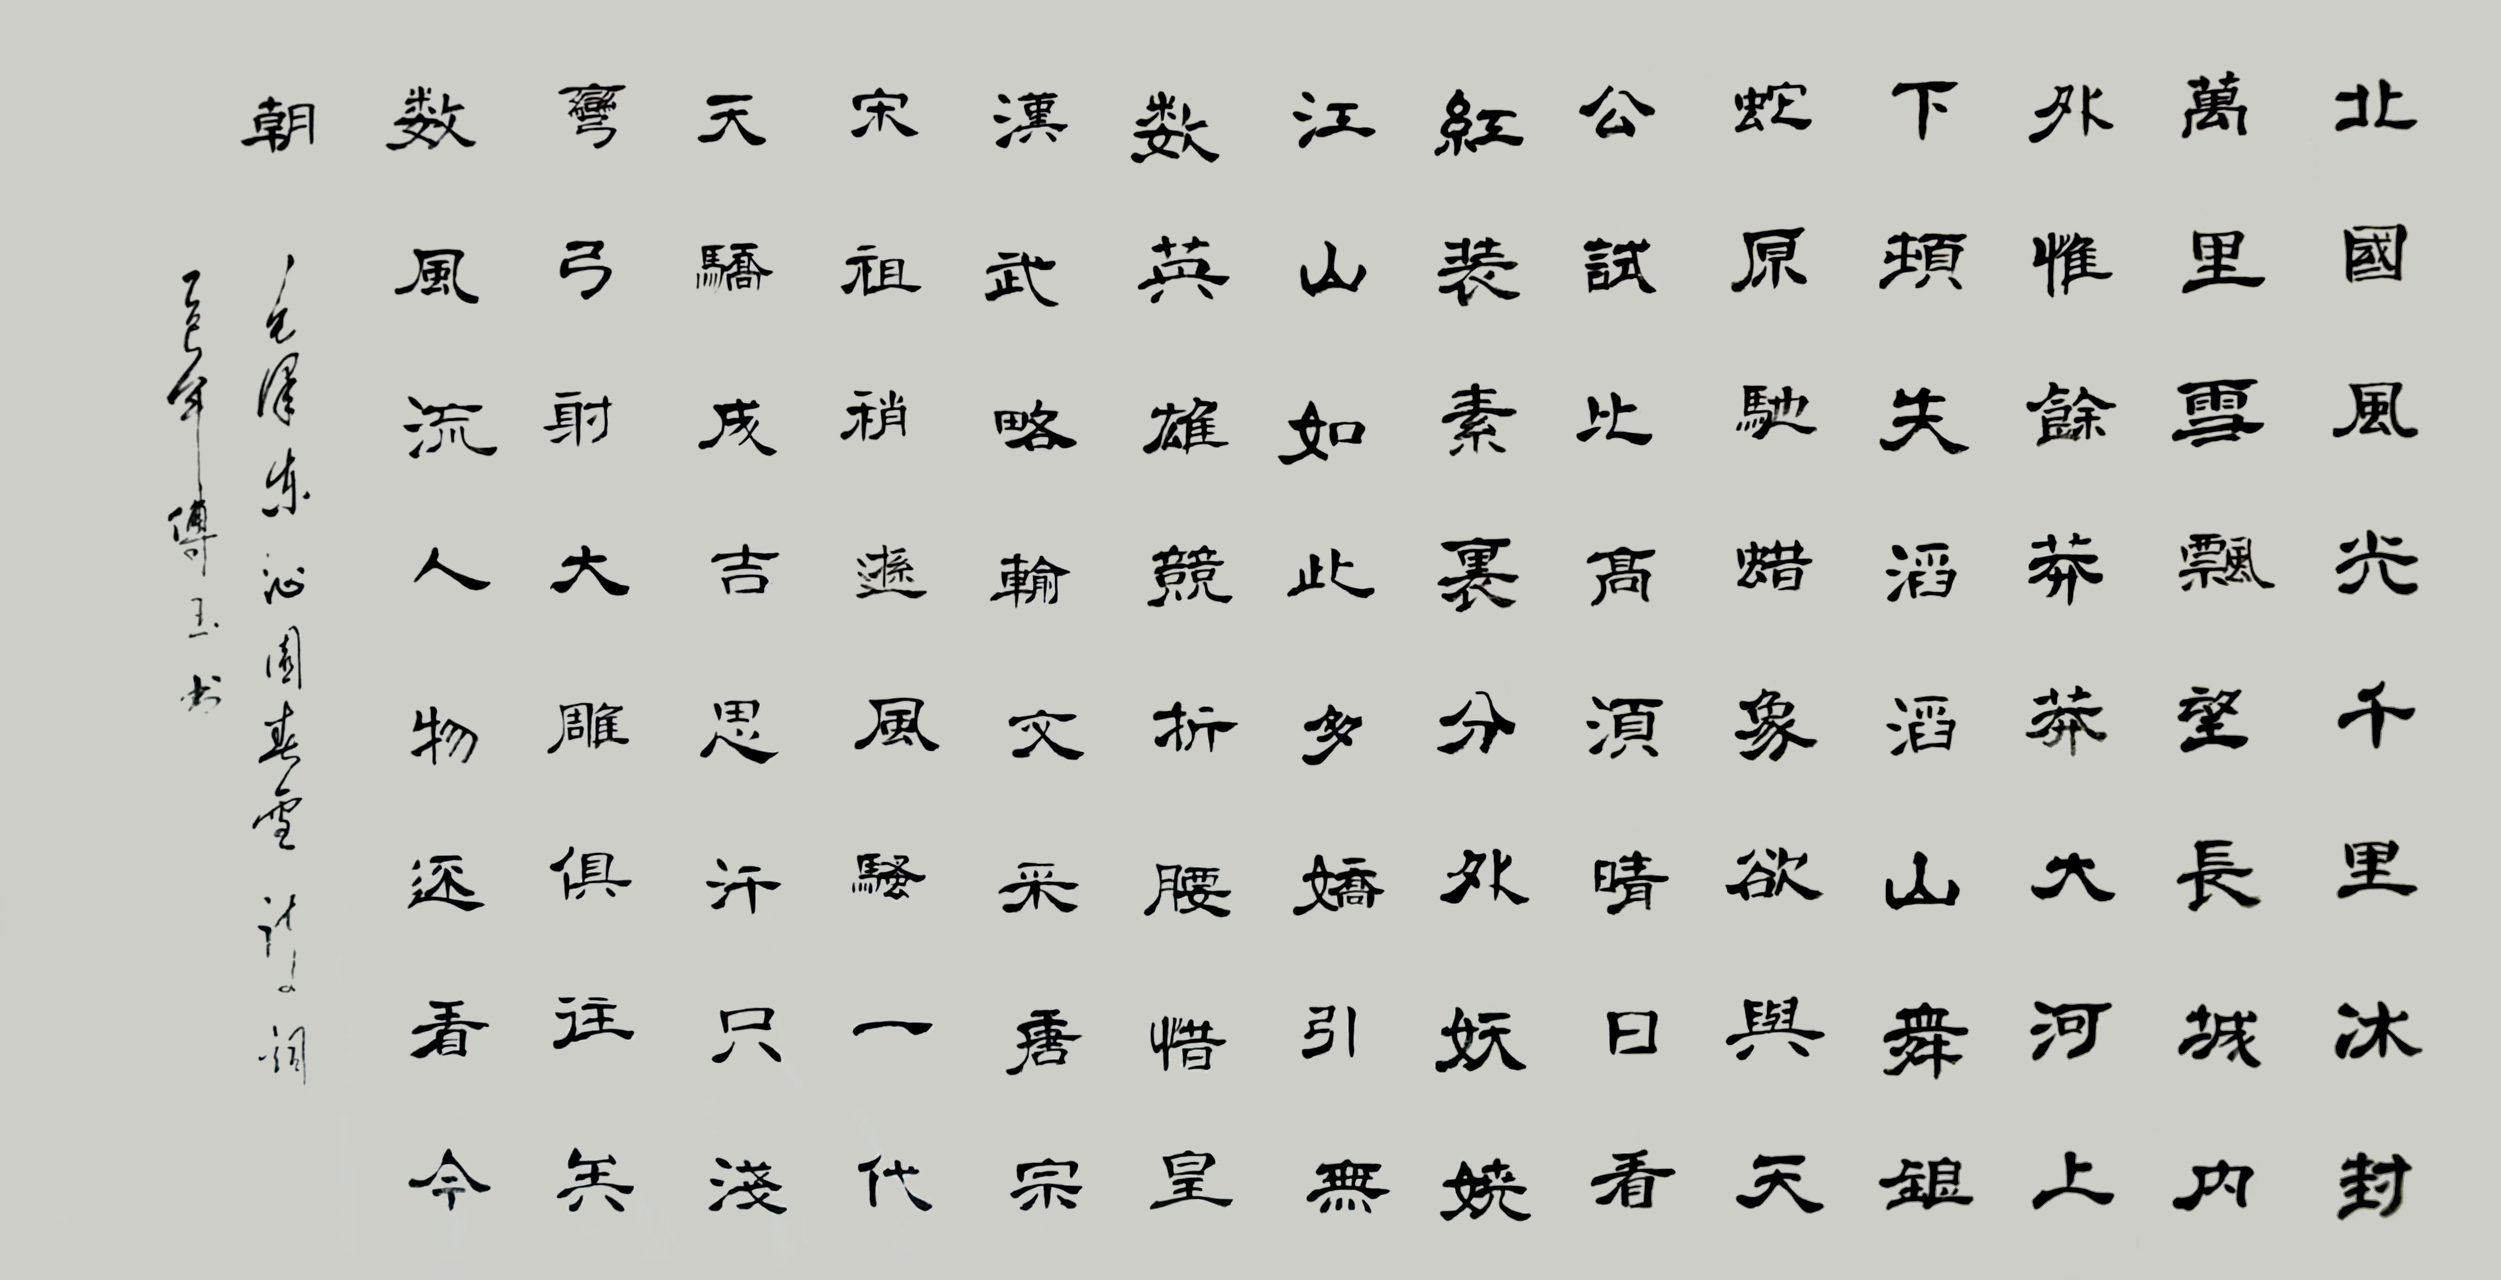 北國風光千里冰封
萬里雪飄望長城内
外惟餘莽莽大河上
下頓失滔滔山舞銀
蛇原馳蜡象欲與天
公試比高須晴日看
紅装素裹分外妖嬈
江山如此多嬌引無
数英雄競折腰惜皇
漢武略輸文采唐宗
宋祖稍遜風騷一代
天驕成吉思汗只淺
彎弓射大雕俱往矣
数風流人物还看今
朝
毛澤东沁園春雪 詞
乙巳年傅玉书